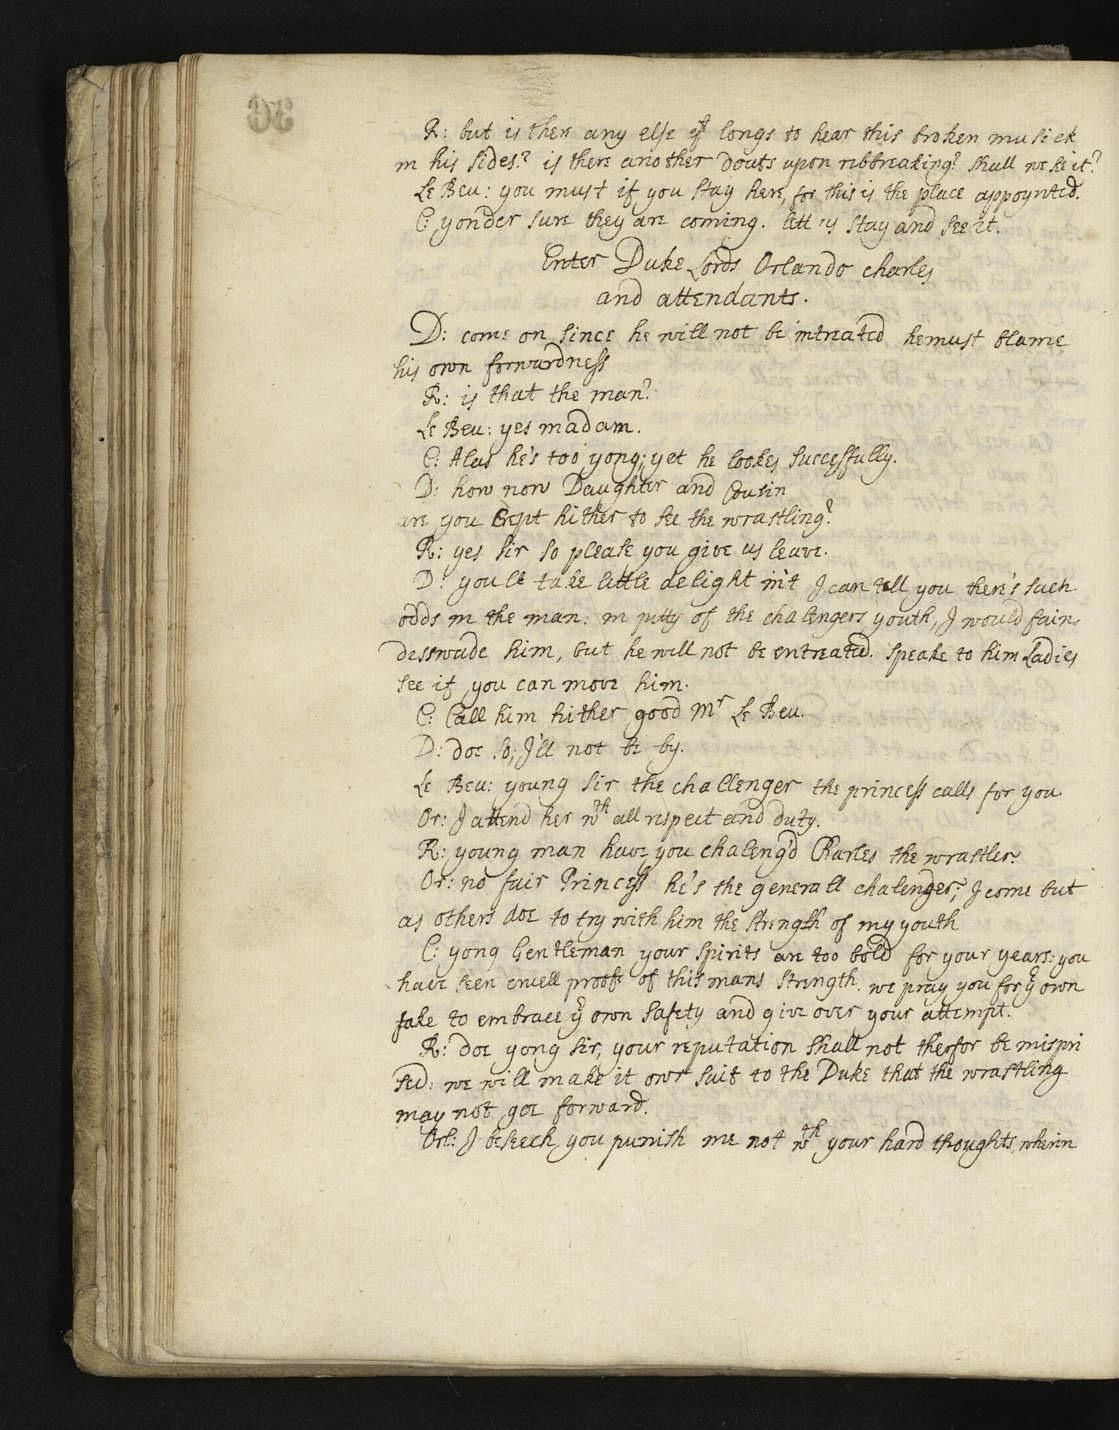 36
R: but is there any else yt longs to hear this broken musick
in his sides? is there another douts upon ribbreaking? shall we se it?
Le Beu: you must if you stay here, for this is the place appoynted.
C: yonder sure they are coming. lett us stay and see it.
Enter Duke Lords Orlando charles
and attendants.
D: come on since he will not be intreated he must blame
his own forwardness
R: is that the man?
Le Beu: yes madam.
C: Alas he's too yong; yet he lookes successfully.
D: how now Daughter and Cousin
are you crept hither to see the wrastling?
R: yes sir so please you give us leave.
D: youle take little delight in't I can tell you there's such
odds in the man: in pitty of the chalengers youth, I would fain
desswade him, but he will not be entreated. speake to him Ladies
see if you can move him.
C: Call him hither good Mr Le Beu.
D: doe so; I'll not be by.
Le Beu: young sir the challenger the princess calls for you
Or: I attend her wth all respect and duty.
R: young man have you chaleng'd Charles the wrastler?
Or: no fair Princess he's the generall chalenger; I come but
as others doe to try with him the strength of my youth
C: yong Gentleman your spirits are too bold for your years: you
have seen cruell proofe of this mans strength. we pray you for yr own
sake to embrace yr own safety and give over your attempt.
R: doe yong sir, your reputation shall not therfor be mispri
sed: we will make it owr suit to the Duke that the wrastling
may not goe forward.
Orl: I beseech you punish me not wth your hard thoughts, wherin